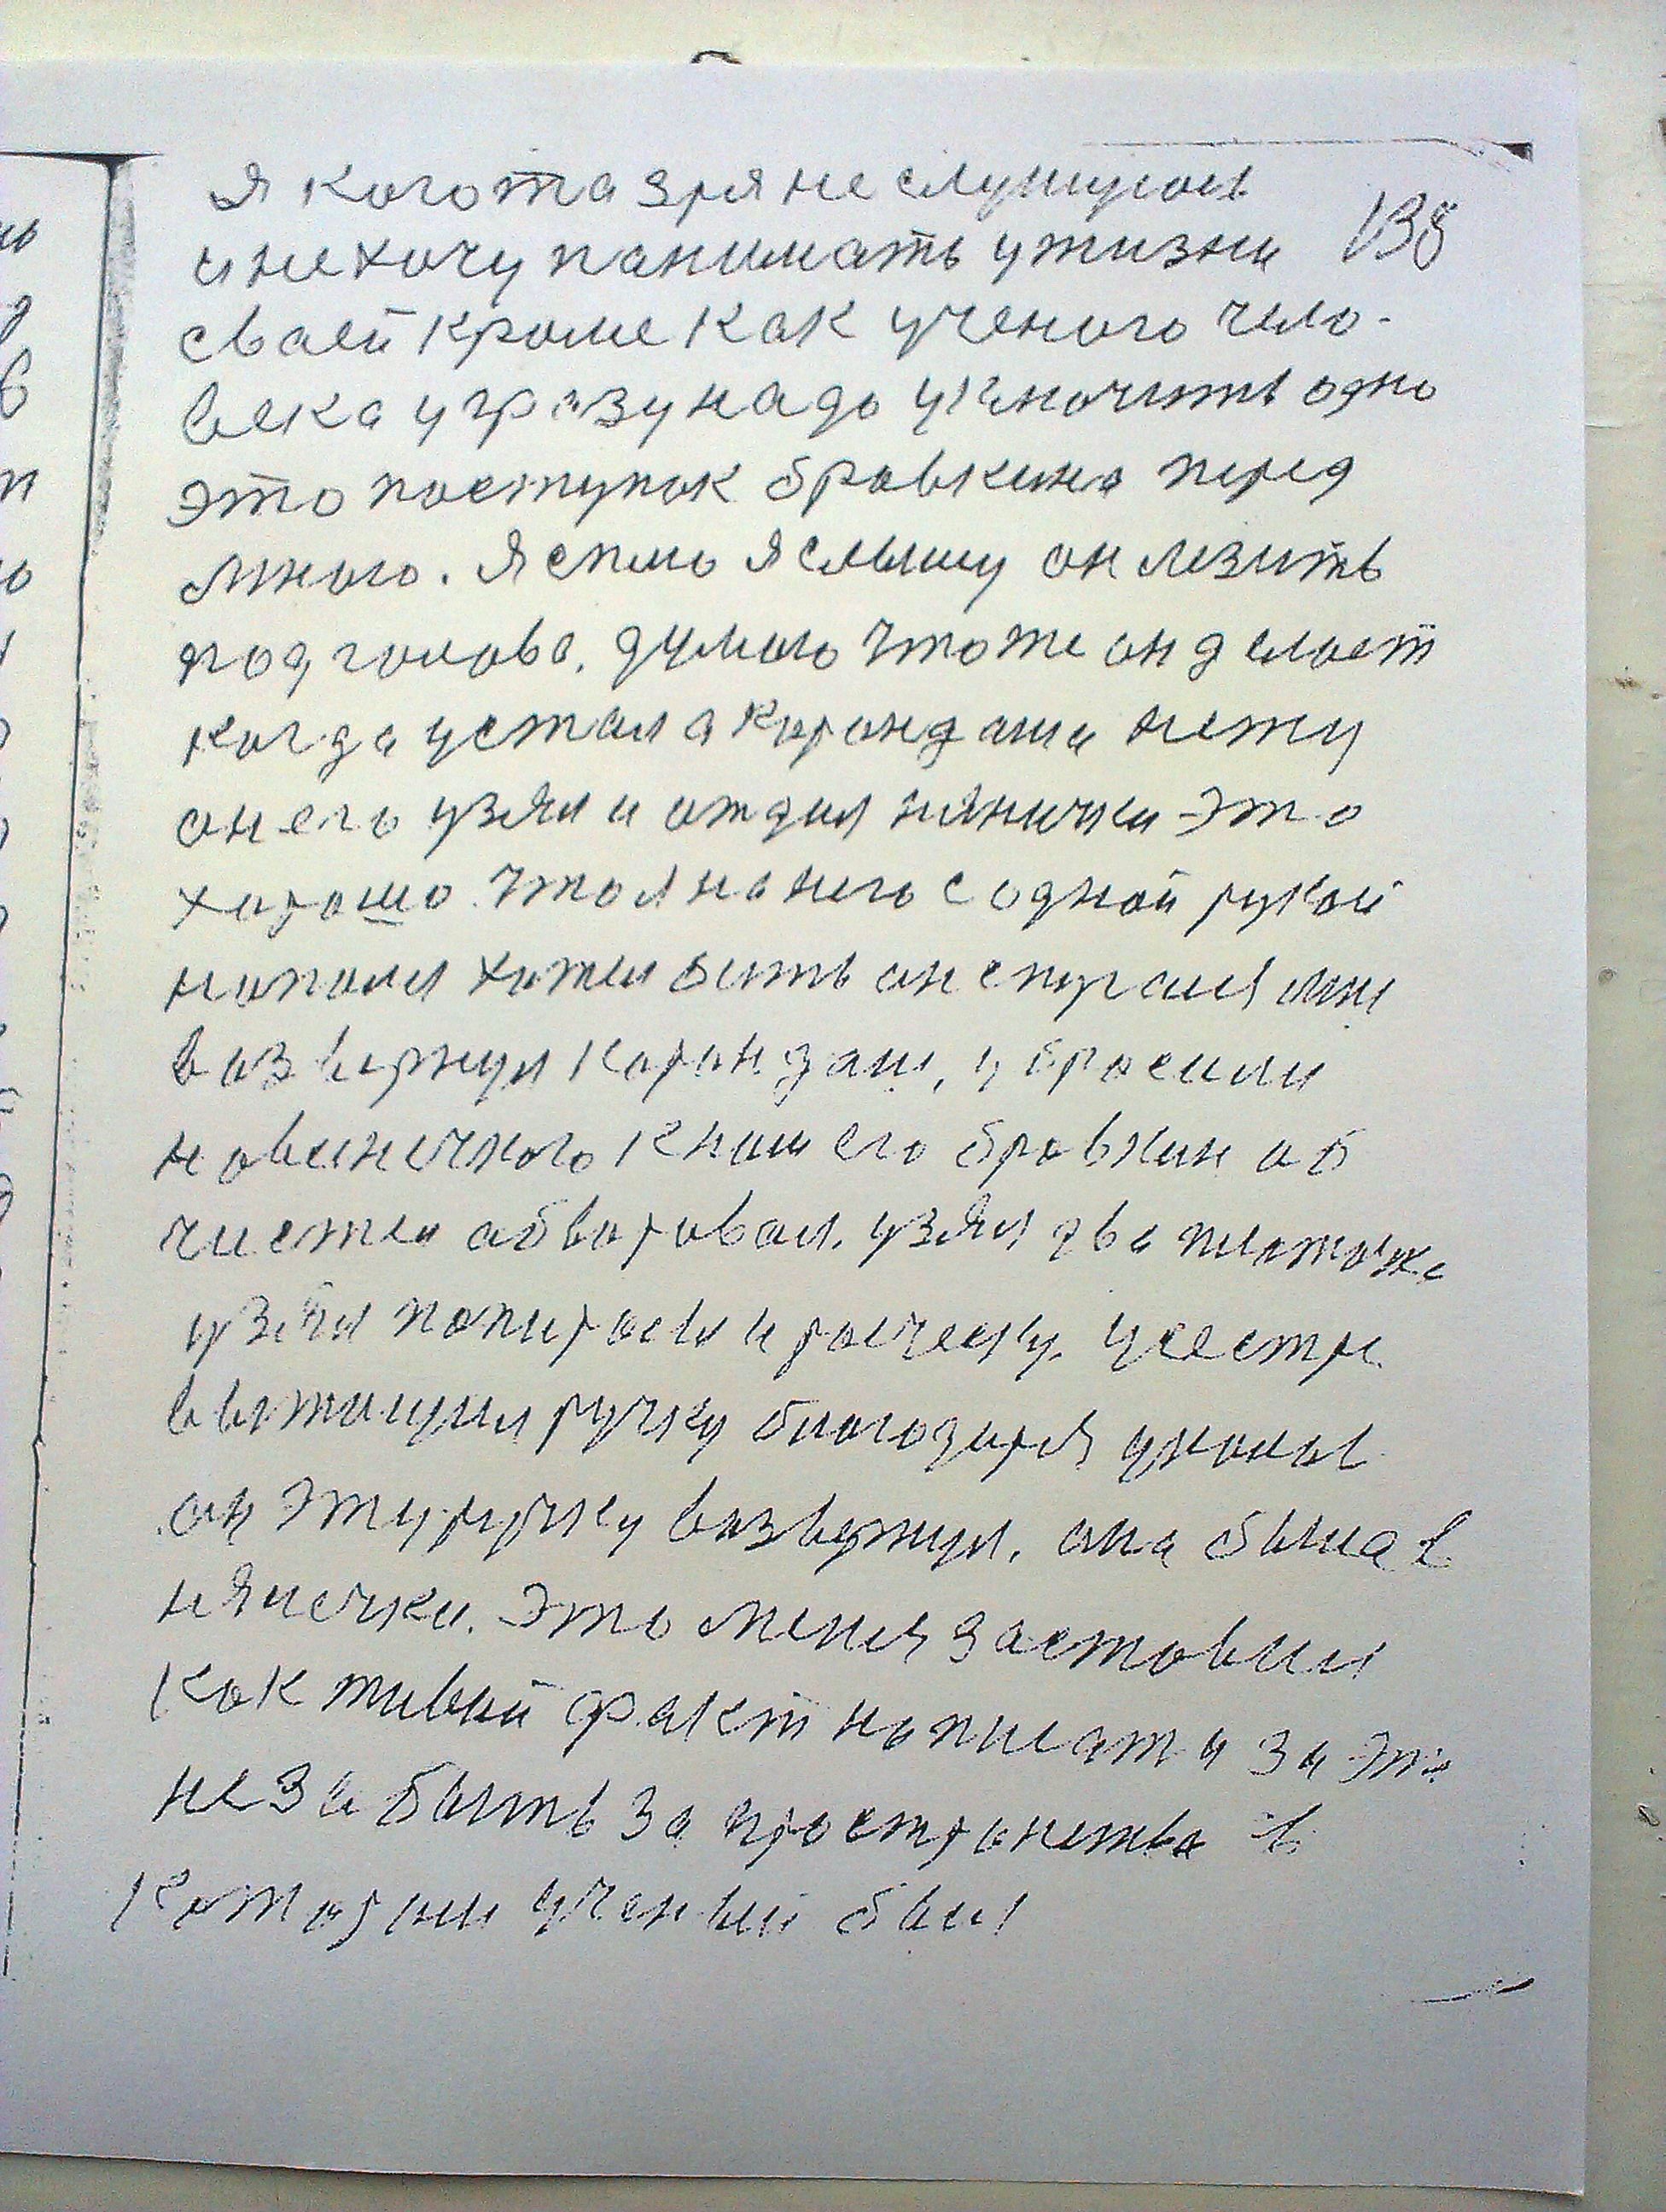 Я когота зря не слушуюсь
138
и не хочу панимать у жизни
сваей кроме как ученого чело-
века у гразу надо
одно
это поступок бравкина перед
мною. Я сплю я слышу он лезить
под голова. думаю что же он делает
когда устал а карандаша нету
он его узял и отдал нянички это
хорошо что я на него с одной рукой
напал хотел бить он спугался мне
возвернул карандаш, у бросили
навиничкого к нам его бравкин об
чистил абваровал. узял два платочка
узял папиросы и расческу. у сестры
вытащил ручку благодаря
он эту ручку возвернул. она была в
нянечки. Это меня заставил
как живой факт написать и за это
не забыть за пространства в
котором ученый был